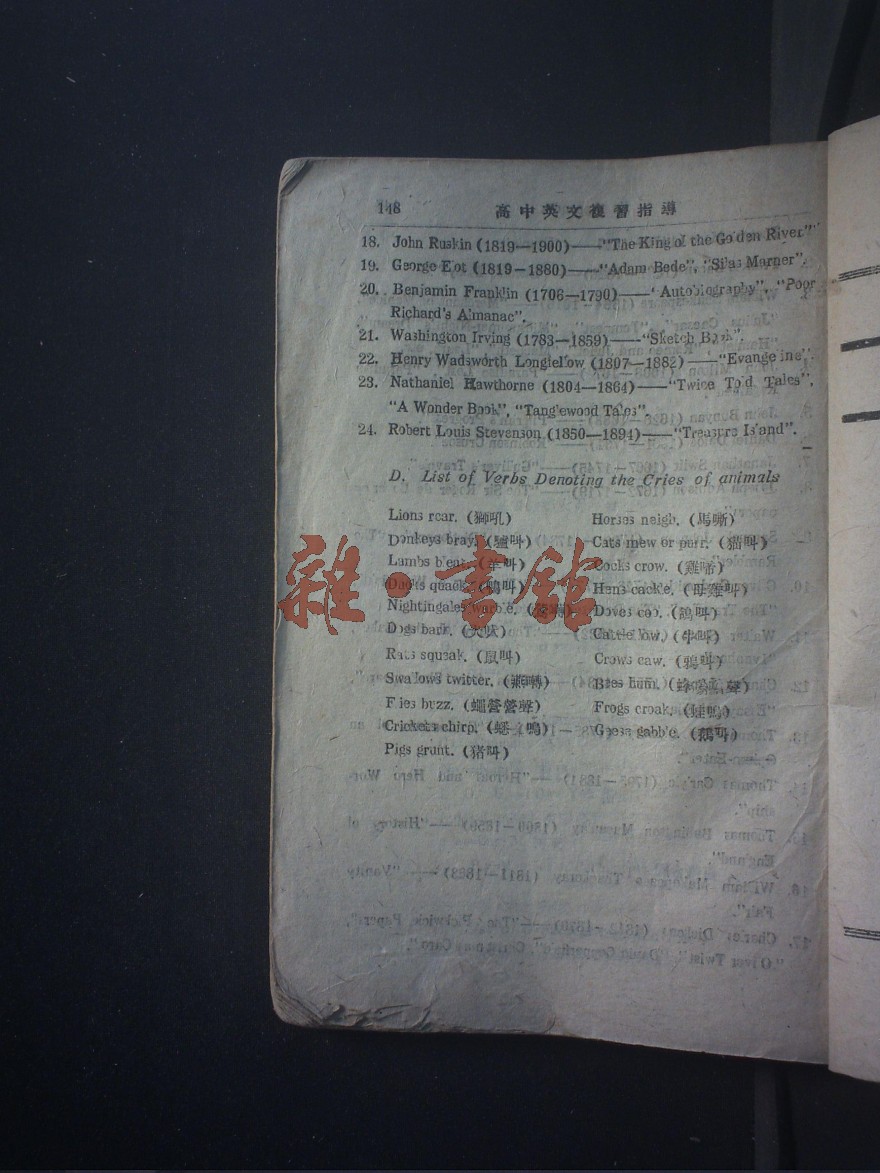 148 高中英文複習指導
18. John Ruskin (1819—1900)——"The King of the Golden River"
19. George Eliot (1819—1880)——"Adam Bede", "Silas Marner".
20. Benjamin Franklin (1706—1790)——"Autobiography", "Poor
Richard's Almanac".
21. Washington Irving (1783—1859)——"Sketch Book".
22. Henry Wadsworth Longfellow (1807—1882)——"Evangeline".
23. Nathaniel Hawthorne (1804—1864)——"Twice Told Tales",
"A Wonder Book", "Tanglewood Tales".
24. Robert Louis Stevenson (1850—1894)——"Treasure Island".
D. List of Verbs Denoting the Cries of animals
Lions roar. (獅吼) Horses neigh. (馬嘶)
Donkeys bray. (驢叫) Cats mew or purr. (猫叫)
Lambs bleat. (羊叫) Cocks crow. (雞啼)
Ducks quack. (鴨叫) Hens cackle. (母雞叫)
Nightingales warble. Doves coo. (鴿叫)
Dogs bark. (犬吠) Cattle low. (牛叫)
Rats squeak. (鼠叫) Crows caw. (鴉叫)
Swallows twitter. (燕囀) Bees hum.
Flies buzz. (蠅營營聲) Frogs croak. (蛙鳴)
Crickets chirp. (蟋蟀鳴) Geese gabble. (鵝叫)
Pigs grunt. (猪叫)
雜·書館